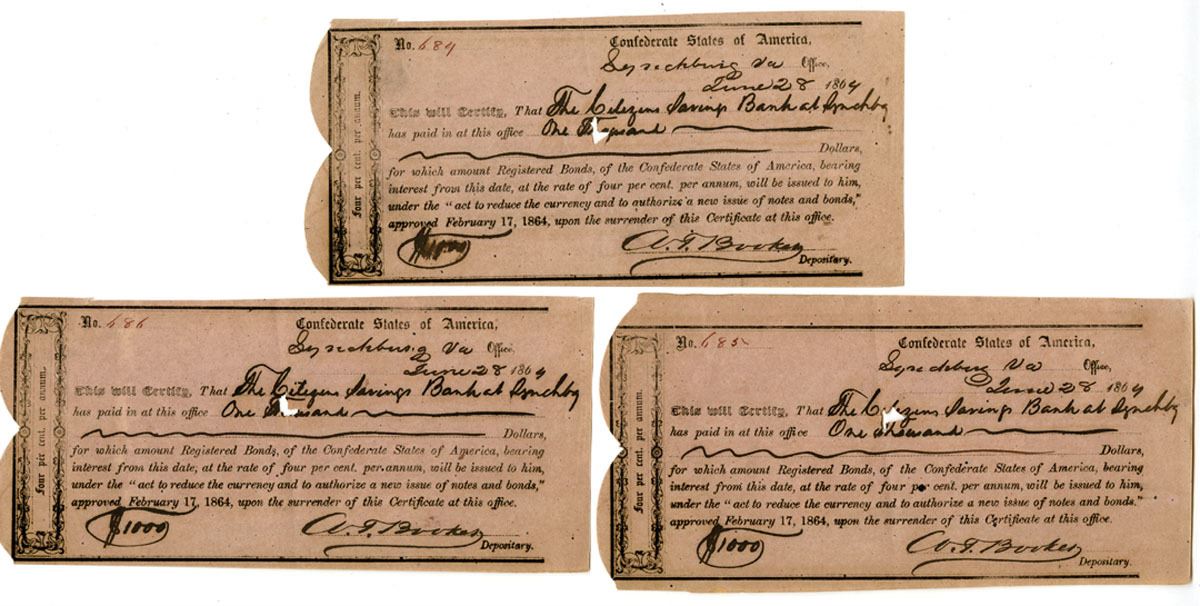 Four per cent. per annum.
No. 684
Confederate States of America,
Lynchburg Va Office,
June 28 1864
This will Certify, That The Citizens Savings Bank at Lynchbg
has paid in at this office One Thousand
Dollars,
for which amount Registered Bonds, of the Confederate States of America, bearing
interest from this date, at the rate of four per cent. per annum, will be issued to him,
under the "act to reduce the currency and to authorize a new issue of notes and bonds,"
approved February 17, 1864, upon the surrender of this Certificate at this office.
$1000
Depositary.
Four per cent. per annum.
No. 686
Confederate States of America,
Lynchburg Va Office,
June 28 1864
This will Certify, That The Citizens Savings Bank at Lynchbg
has paid in at this office One Thousand
Dollars,
for which amount Registered Bonds, of the Confederate States of America, bearing
interest from this date, at the rate of four per cent. per annum, will be issued to him,
under the "act to reduce the currency and to authorize a new issue of notes and bonds,"
approved February 17, 1864, upon the surrender of this Certificate at this office.
$1000
Depositary.
Four per cent. per annum.
No. 685
Confederate States of America,
Lynchburg Va Office,
June 28 1864
This will Certify, That The Citizens Savings Bank at Lynchbg
has paid in at this office One thousand
Dollars,
for which amount Registered Bonds, of the Confederate States of America, bearing
interest from this date, at the rate of four per cent. per annum, will be issued to him,
under the "act to reduce the currency and to authorize a new issue of notes and bonds."
approved February 17, 1864, upon the surrender of this Certificate at this office.
$1000
Depositary.